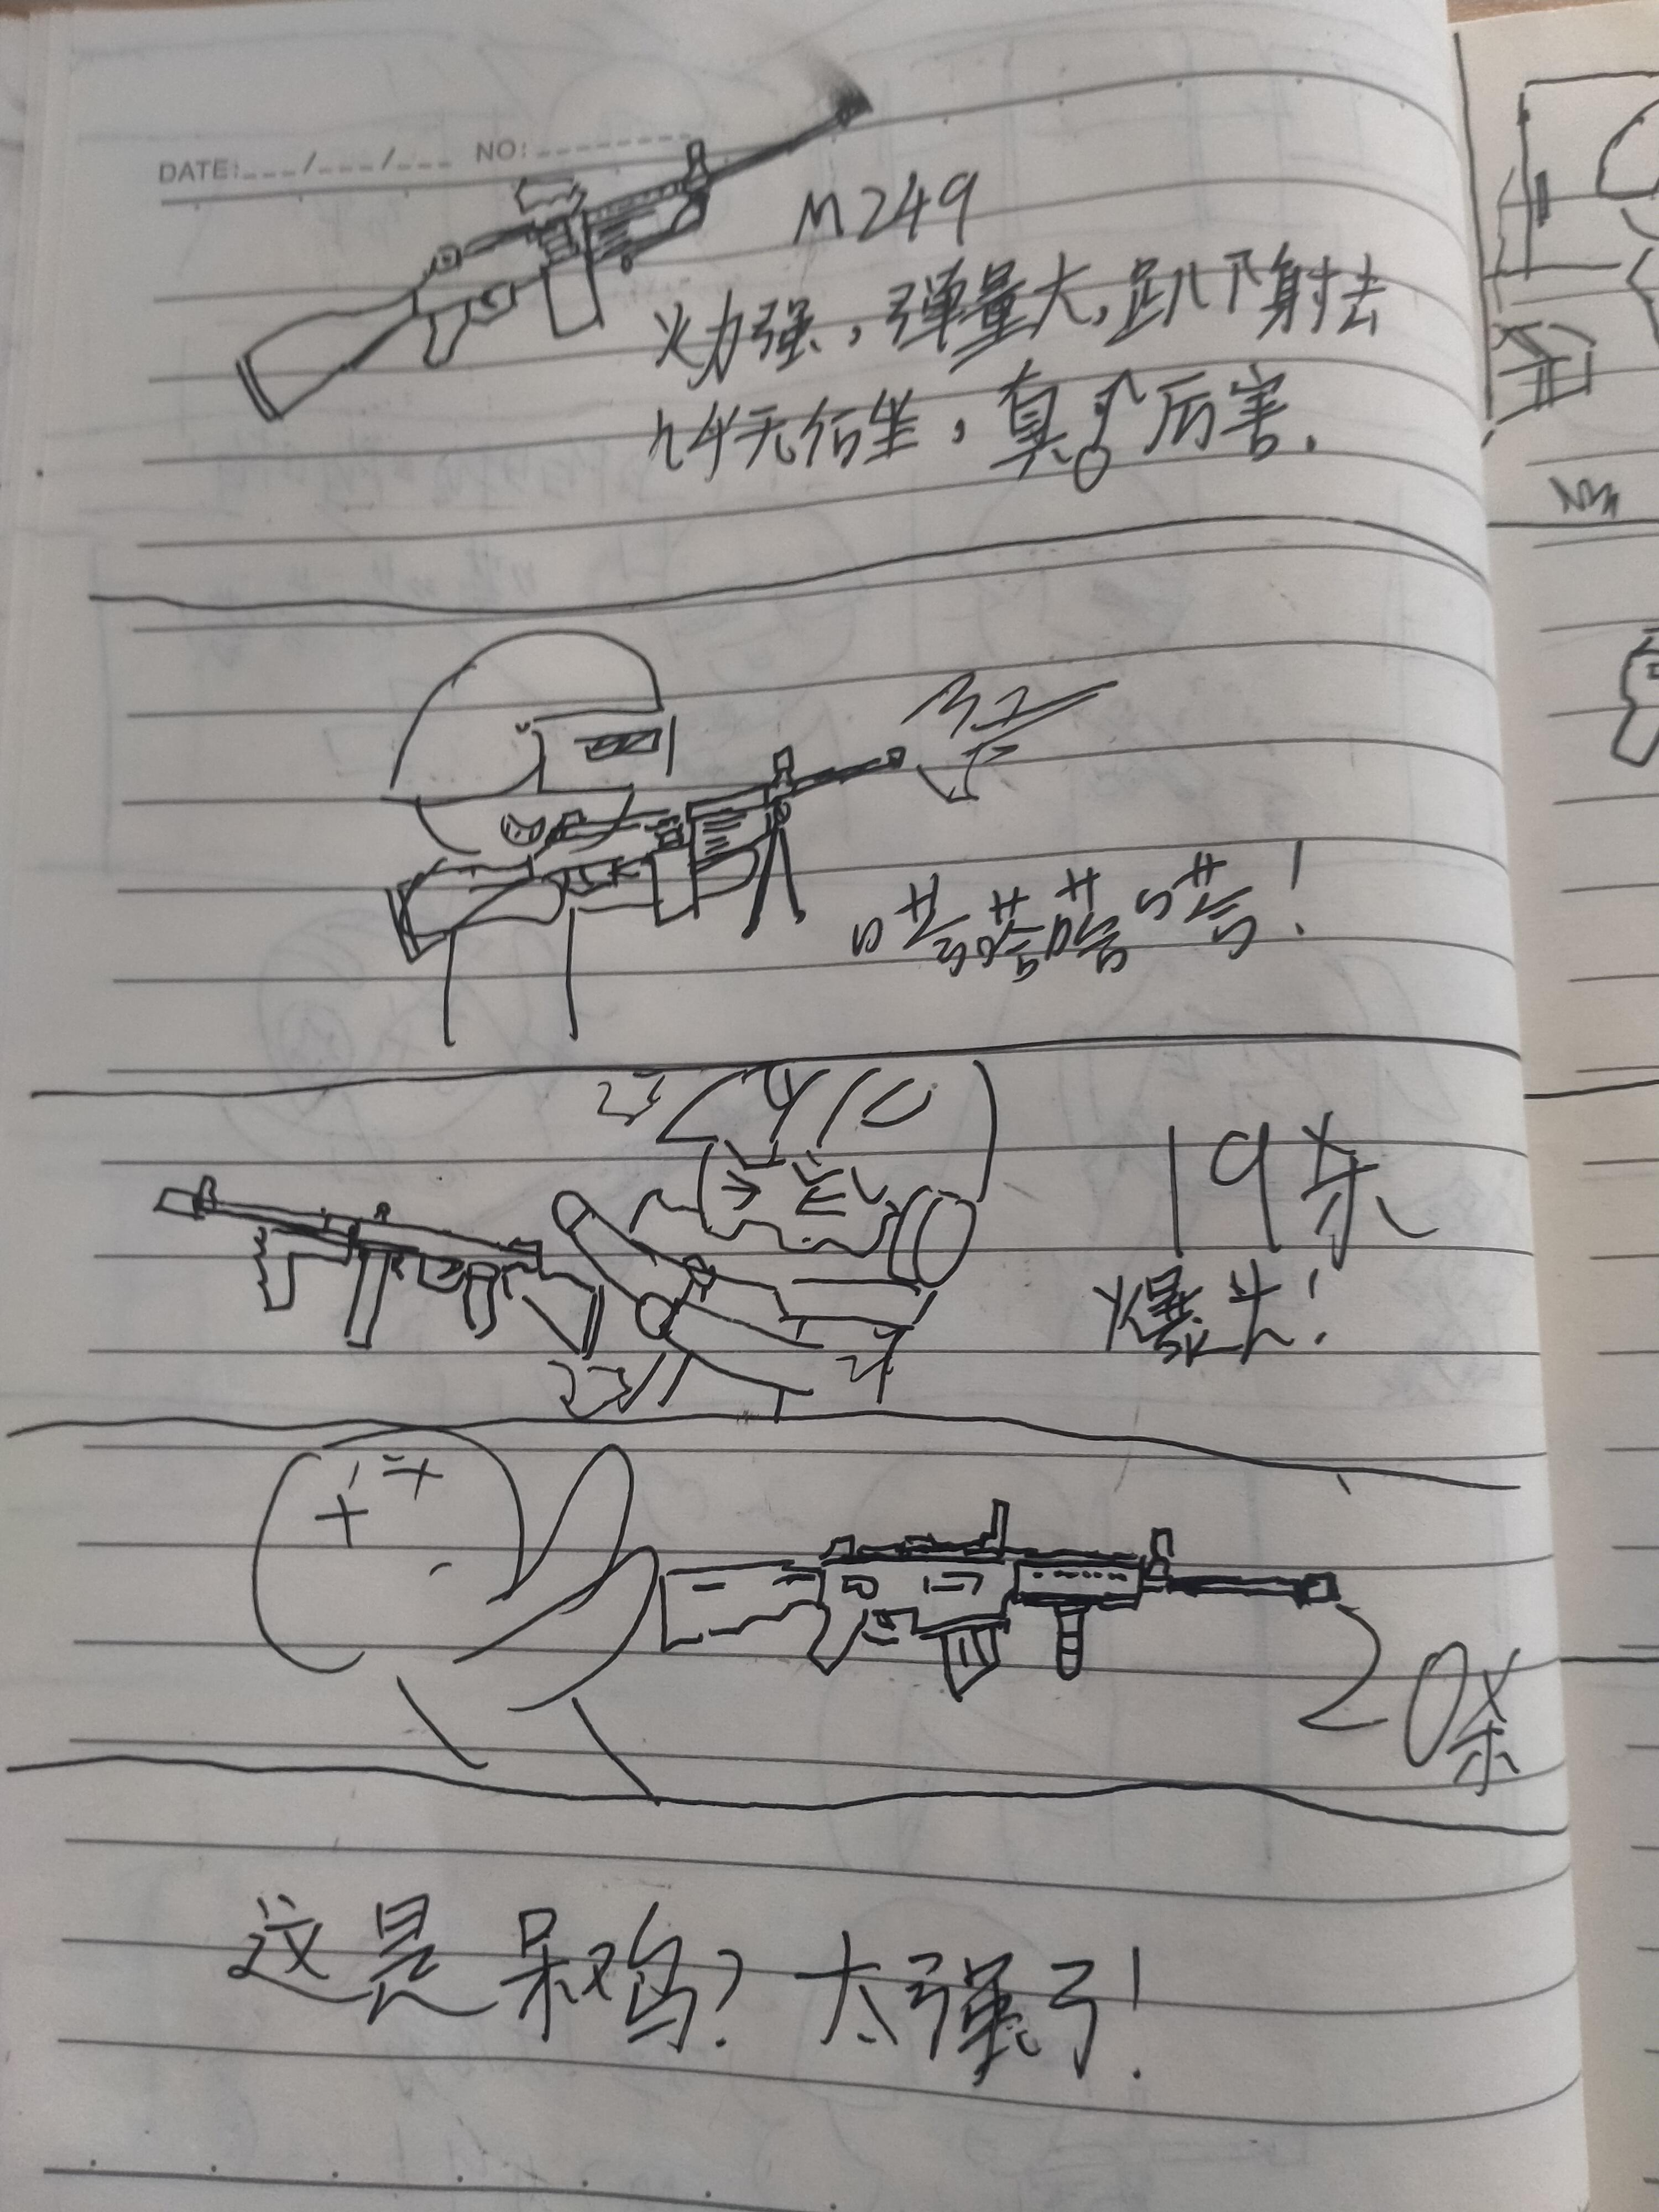 DATE: / / NO:
M249
火力强，弹量大，趴下射去
几乎无后坐，真厉害.
噔噔噔噔！
19杀
爆头！
20杀
这是呆鸡？太强了！